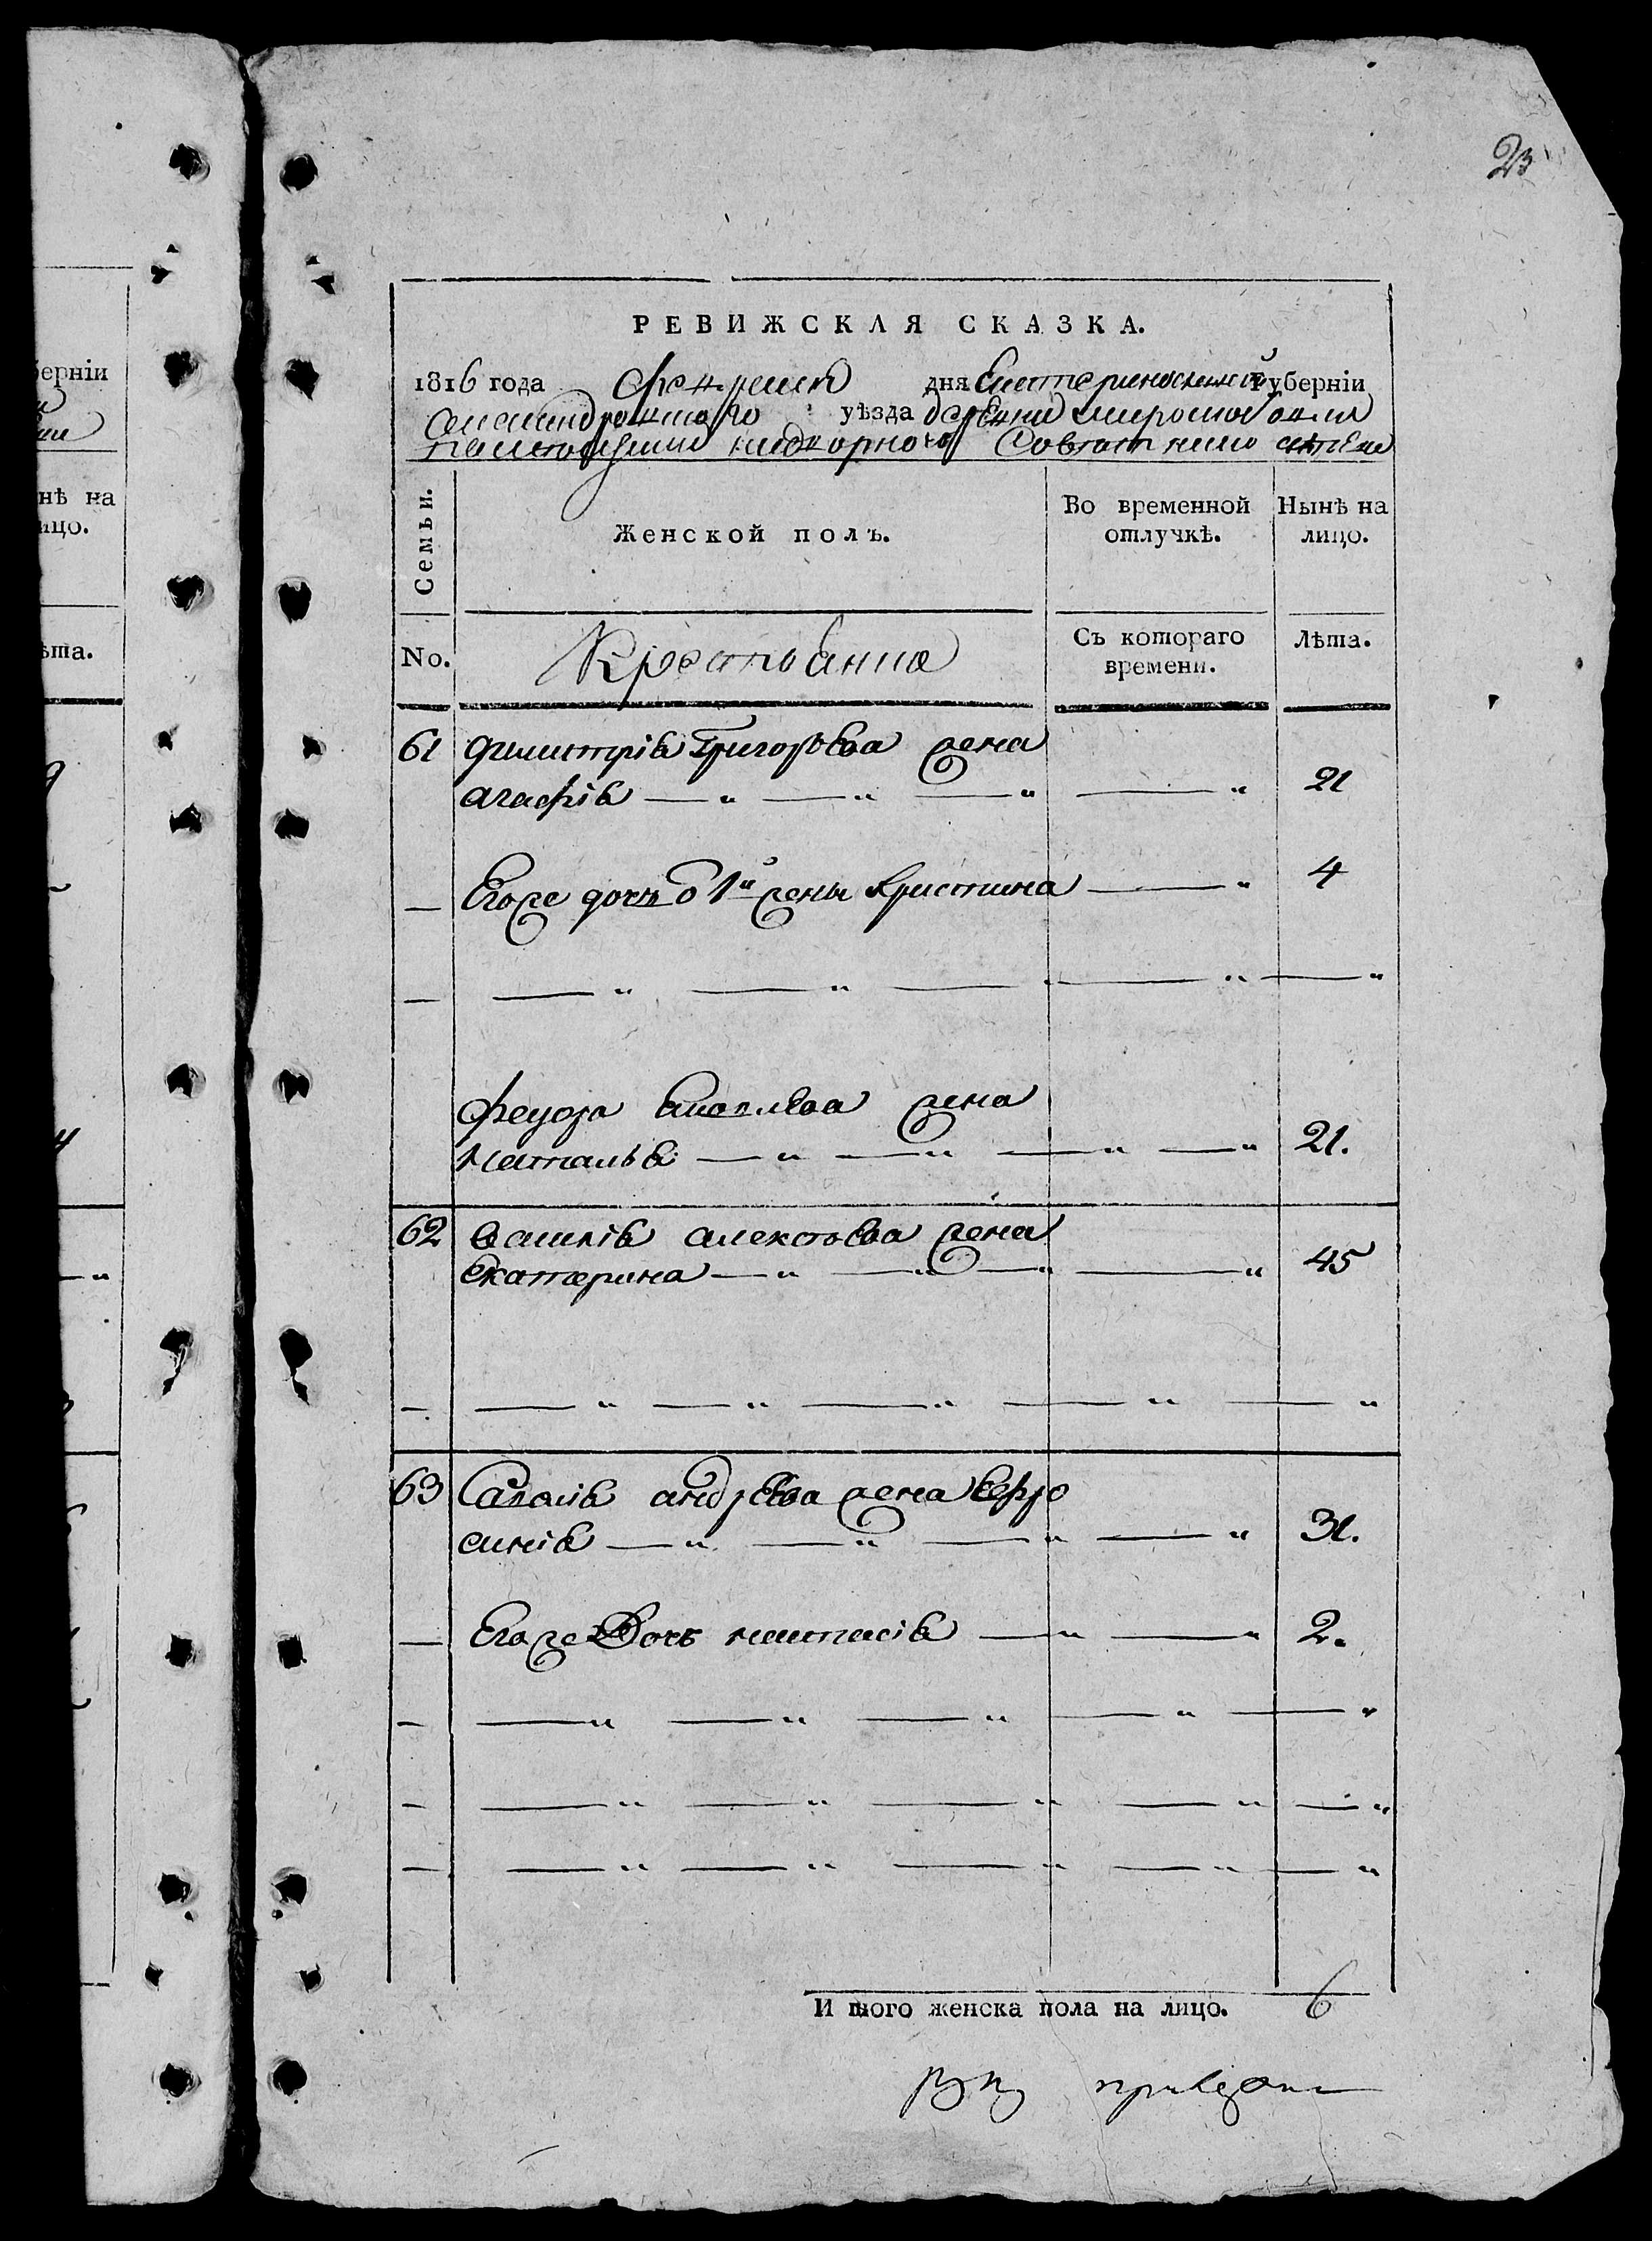 23
РЕВИЖСКАЯ СКАЗКА.
1816 года февраля дня Екатеринославской губерніи
Александровскаго уѣзда деревни
надворного Советника
Семьи.
Женской полъ.
Во временной отлучкѣ.
Нынѣ на лицо.
No.
Крестьянѣ
Съ котораго времени.
Лѣта.
61 Димитрія Григорьева жена
агафія — " — " — " — " 21
— Егоже дочь о 1й жены Христина — " 4
— — " — " — — " — "
Федора жена
Наталья — " — " — " — " 21.
62 Василія алексѣева жена
Екатерина — " — " — " — " 45
— — " — " — " — " — "
63 андрѣева жена Ефро
синія — " — " — " — " 31.
— Егоже Дочь настасія — " — " 2.
— — " — " — " — " — "
— — " — " — " — " — "
— — " — " — " — " — "
Итого женска пола на лицо. 6